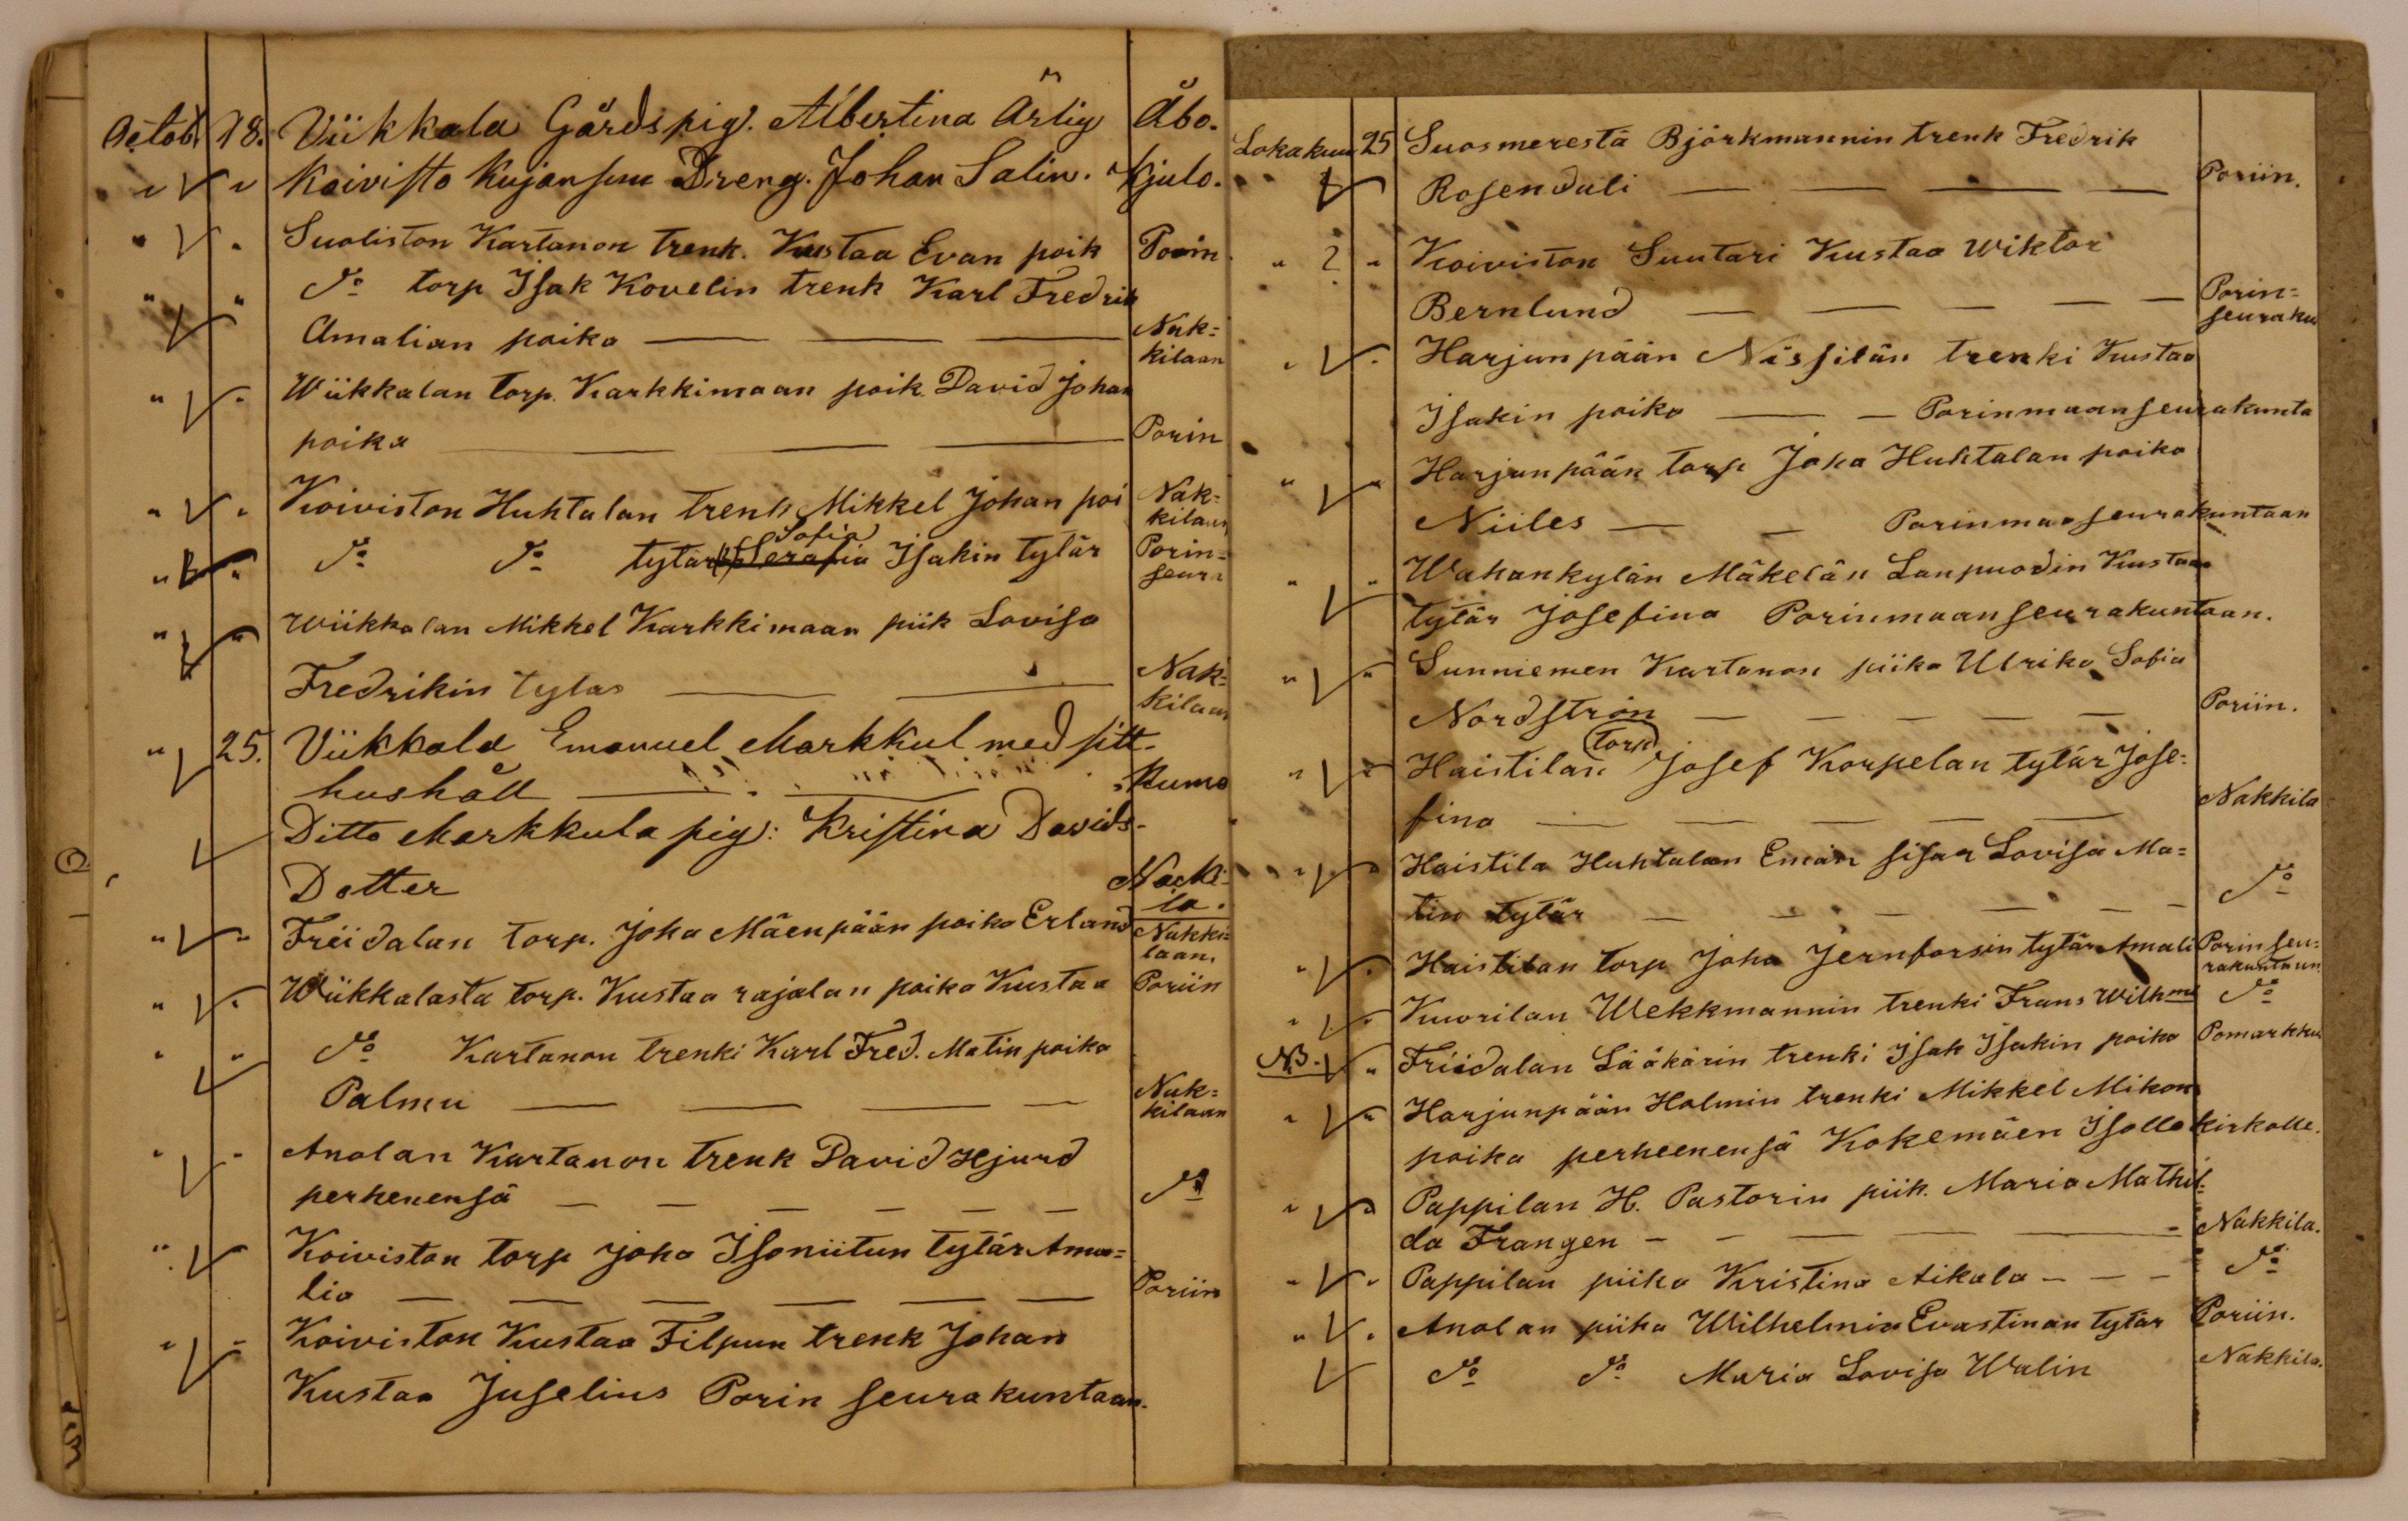 Octob. 18. Viikkala Gårdspig. Albertina Ärlig Åbo.
" " Koivisto Kujansuu Dreng. Johan Salin. Kjulo.
" " Suoliston Kartanon trenk. Kustaa Evan poik Porin
" " Do torp Isak Kovelin trenk Karl Fredrik
Amalian poika — — — Nak=
kilaan
" " Wiikkalan torp. Karkkimaan poik. David Johan
poika — — — Porin
" " Koiviston Huhtalan trenk Mikkel Johan poi Nak=
kilaan
Sofia
" " Do Do tytär Serafia Isakin tytär Porin=
seura
" " Wiikkalan Mikkel Karkkimaan piik Lovisa
Fredrikin tytar — — Nak=
kilaan
" 25. Viikkala Emanuel Markkul med sitt
hushåll — — Kumo
Ditto Markkula pig: Kristina Davids-
Dotter Nacki-
la.
" " Friidalan torp. Joha Mäenpään poika Erland Nakki=
laan.
" " Wiikkalasta torp. Kustaa rajalan poika Kustaa Poriin
" " Do Kartanon trenki Karl Fred. Matin poika
Palmu — — — — Nak=
kilaan
" " Anolan Kartanon trenk David Hjurd
perhenensä — — — — — — Do
" Koiviston torp Joha Isoniitun tytär Ama=
lia — — — — — — Poriin
" " Koiviston Kustaa Filpun trenk Johan
Kustaa Juselius Porin seurakuntaan.
Lokakuu 25 Suosmerestä Björkmannin trenk Fredrik
Rosendali — — — — Poriin.
" ? " Koiviston Suutari Kustaa Wiktor
Bernlund — — — — — Porin=
seuraku
" " Harjunpään Nissilän trenki Kustaa
Isakin poika — — Porinmaanseurakunta
" " Harjunpään torp Joha Huhtalan poika
Niiles — — Porinmaaseurakuntaan
" " Wahankylän Mäkelän Lanpuodin Kustaan
tytär Josefina Porinmaanseurakuntaan.
" " Sunniemen Kartanon piika Ulrika Sofia
Nordströn — — — — — Poriin.
torp
" " Haistilan Josef Korpelan tytär Jose=
fina — — — — — Nakkila
" " Haistila Huhtalan Emän sisar Lovisa Ma=
tin tytär — — — — — — Do
" " Haistilan torp Joha Jernforsin tytär Amali Porin seu=
rakuntaan
" " Kuorilan Wekkmannin trenki Frans Wilhm Do
NB. " Friidalan Lääkärin trenki Isak Isakin poika Pomarkku
" " Harjunpään Holmin trenki Mikkel Mikon
poika perheenensä Kokemäen Isolle kirkolle.
" " Pappilan H. Pastorin piik. Maria Mathil=
da Frangen — — — — — Nakkila.
" " Pappilan piika Kristina Aikala — — — Do
" " Anolan piika Wilhelmia Evastinan tytär Poriin.
Do Do Maria Lovisa Walin Nakkila.